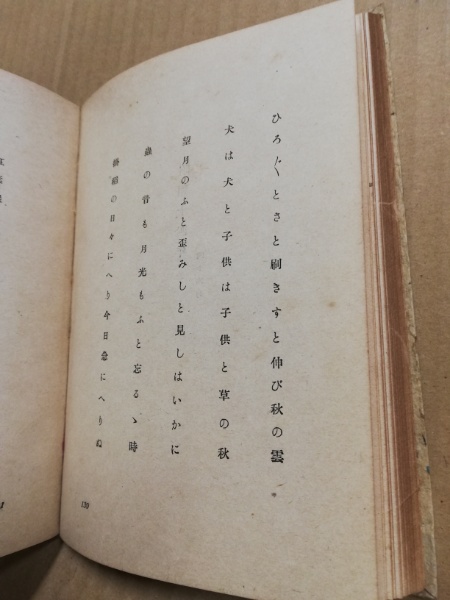 ひろ〴〵とさと刷きすと伸び秋の雲
犬は犬と子供は子供と草の秋
望月のふと歪みしと見しはいかに
蟲の音も月光もふと忘るゝ時
掛稻の日々にへり今日急にへりぬ
130